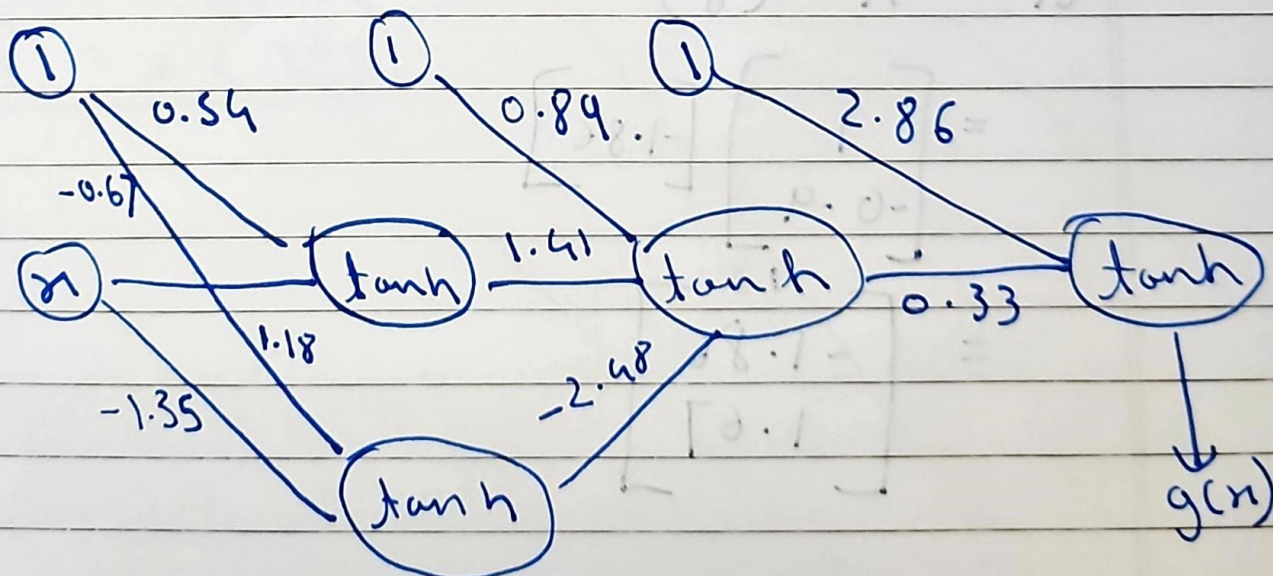 1 1 1
0.54 0.89. 2.86
-0.67
x tanh 1.41 tanh 0.33 tanh
1.18
-1.35 -2.48
tanh g(x)